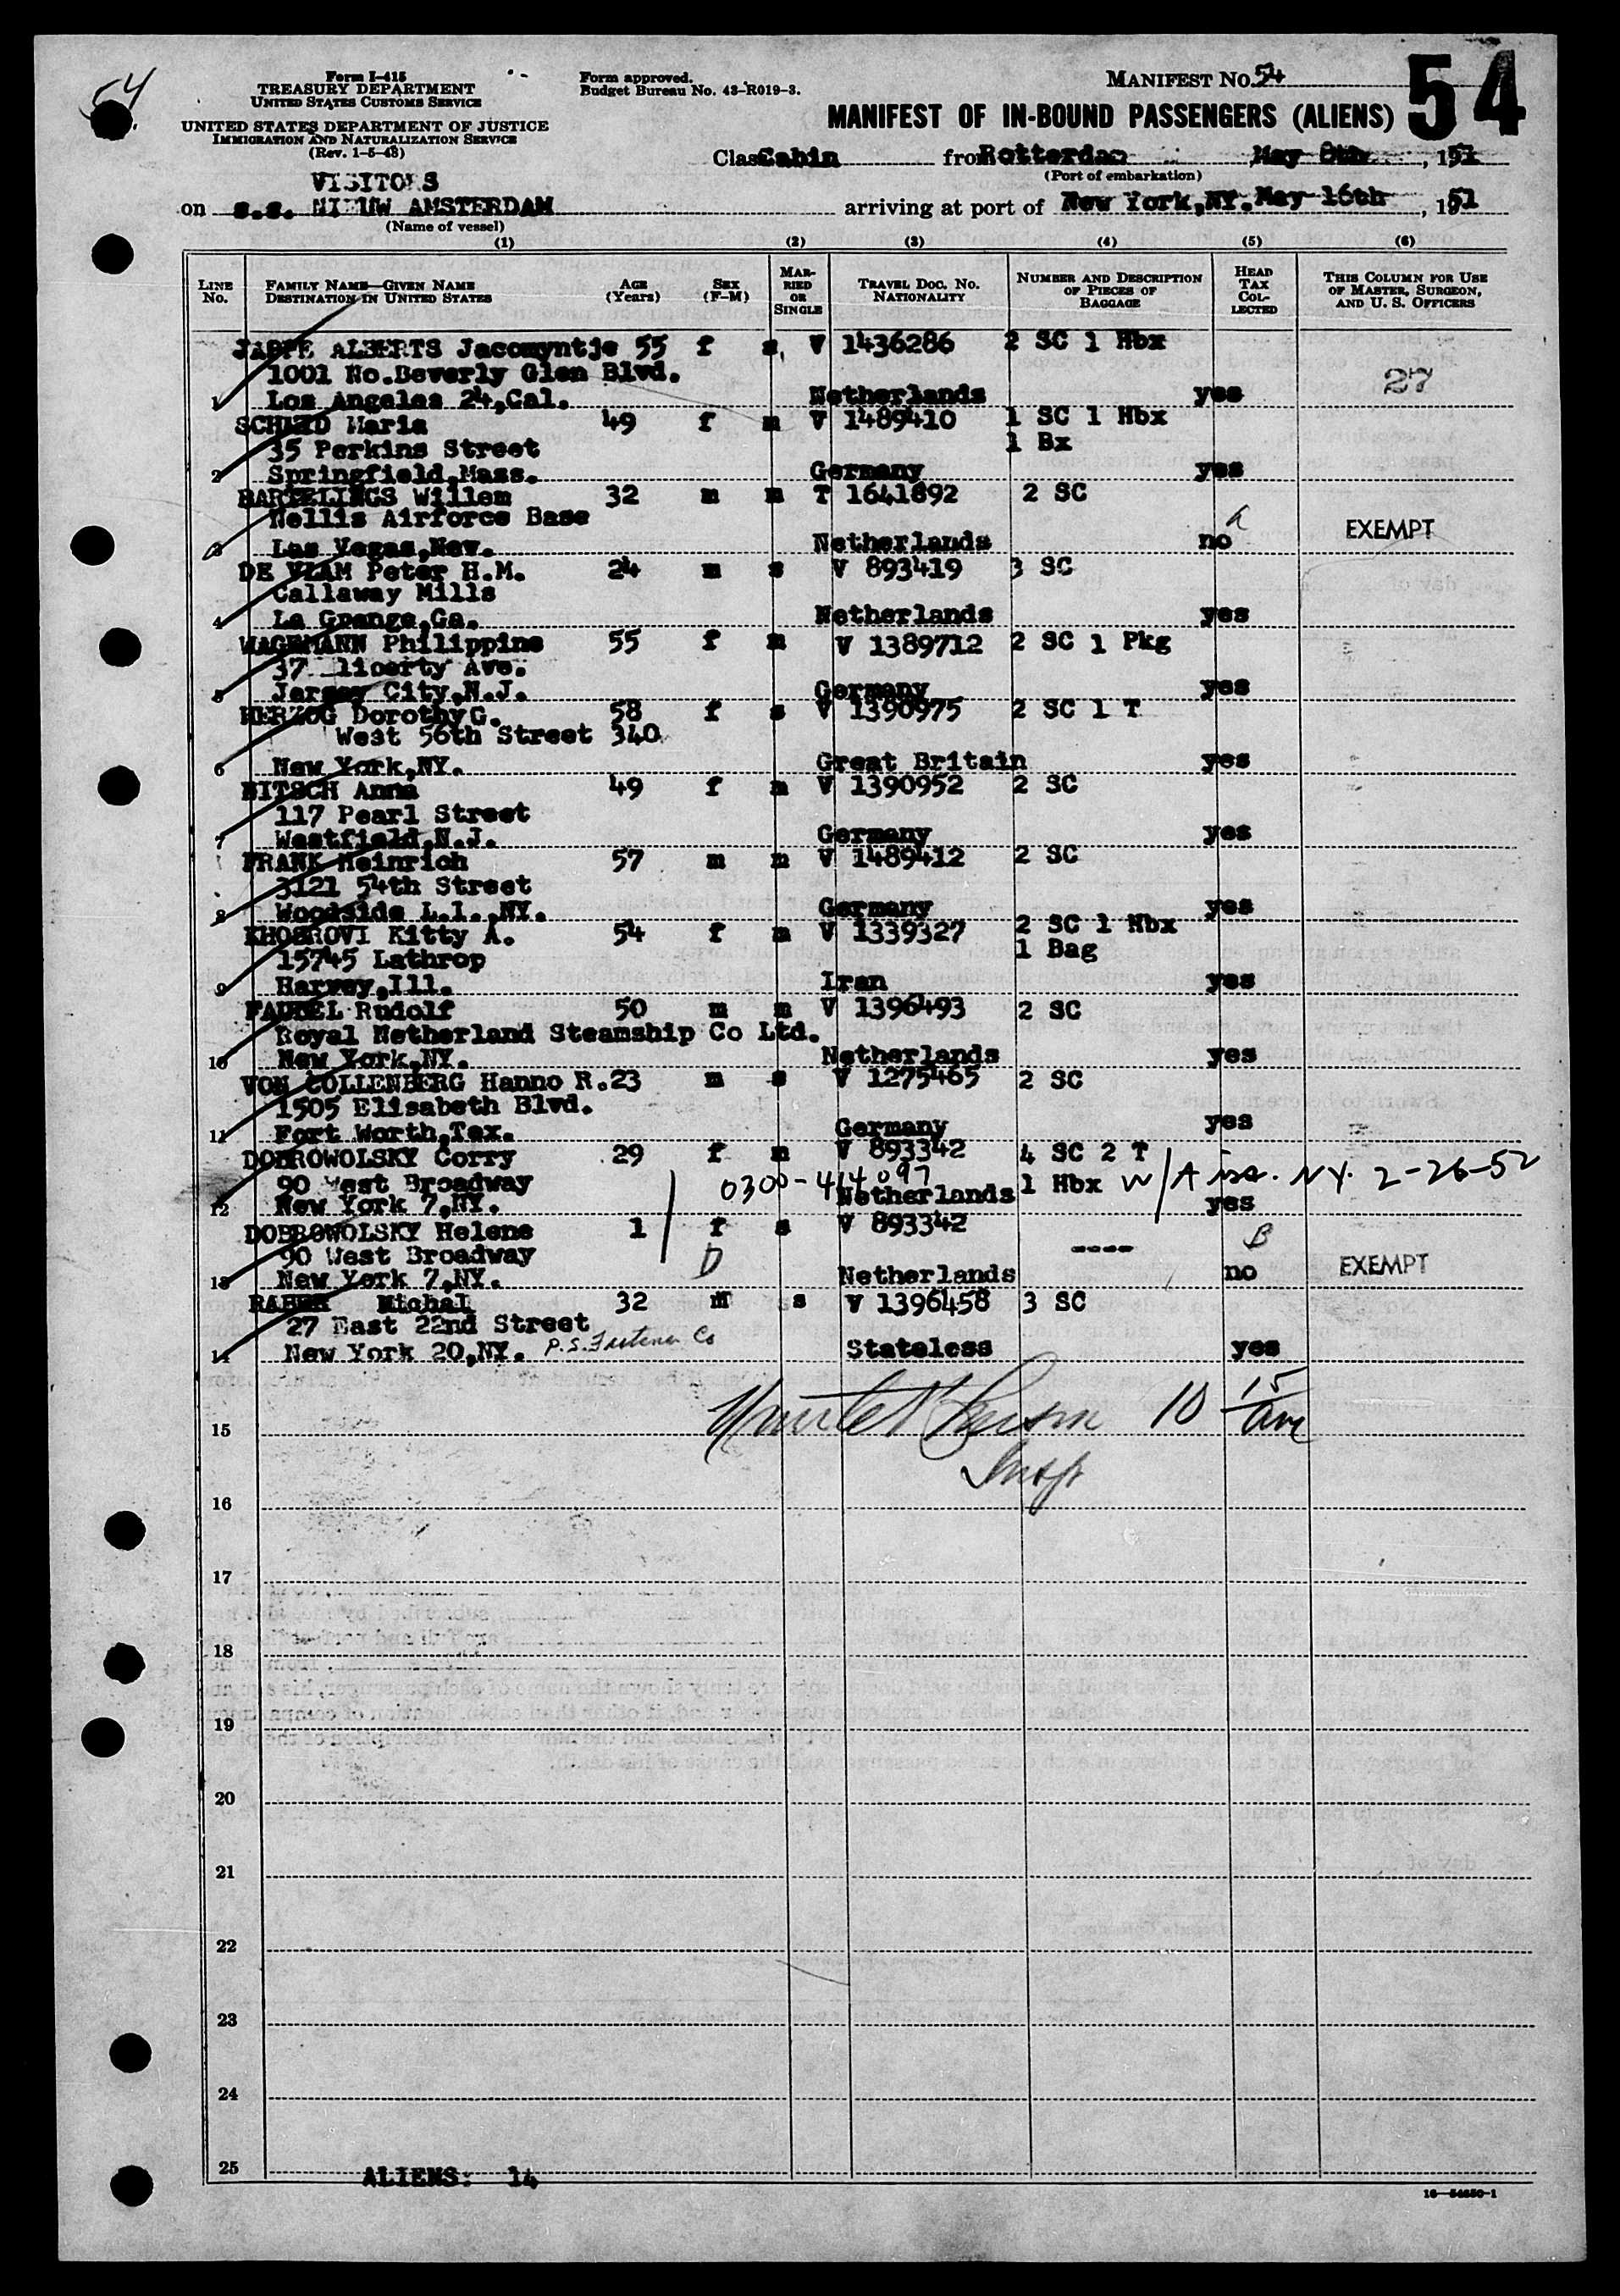 54
Form I-415
TREASURY DEPARTMENT
UNITED STATES CUSTOMS SERVICE
UNITED STATES DEPARTMENT OF JUSTICE
IMMIGRATION AND NATURALIZATION SERVICE
(Rev. 1-5-48)
Form approved.
Budget Bureau No. 43-R019-3.
MANIFEST NO. 54
54
MANIFEST OF IN-BOUND PASSENGERS (ALIENS)
Class Cabin from Rotterdam May 8th, 1951
(Port of embarkation)
VISITORS
on s.s. NIEUW AMSTERDAM arriving at port of New York,NY. May 16th, 1951
(Name of vessel)
(1) (2) (3) (4) (5) (6)
LINE NO. FAMILY NAME—GIVEN NAME DESTINATION IN UNITED STATES AGE (Years) SEX (F-M) MARRIED OR SINGLE TRAVEL DOC. NO. NATIONALITY NUMBER AND DESCRIPTION OF PIECES OF BAGGAGE HEAD TAX COLLECTED THIS COLUMN FOR USE OF MASTER, SURGEON, AND U. S. OFFICERS
ALBERTS Jacomyntje 55 f s V 1436286 2 SC 1 Hbx
1001 No.Beverly Glen Blvd. 27
1 Los Angeles 24,Cal. Netherlands yes
SCHMID Maria 49 f m V 1489410 1 SC 1 Hbx
35 Perkins Street 1 Bx
2 Springfield,Mass. Germany yes
BARTELINGS Willem 32 m m T 1641892 2 SC
Nellis Airforce Base EXEMPT
3 Las Vegas,Nev. Netherlands no
DE VLAM Peter H.M. 24 m s V 893419 3 SC
Callaway Mills
4 La Grange,Ga. Netherlands yes
WAGEMANN Philippine 55 f m V 1389712 2 SC 1 Pkg
37 liberty Ave.
5 Jersey City,N.J. Germany yes
HERZOG Dorothy G. 58 f s V 1390975 2 SC 1 T
West 56th Street 340
6 New York,NY. Great Britain yes
BITSCH Anna 49 f m V 1390952 2 SC
117 Pearl Street
7 Westfield,N.J. Germany yes
FRANK Heinrich 57 m m V 1489412 2 SC
3121 54th Street
8 Woodside L.I.,NY. Germany yes
KHOSROVI Kitty A. 54 f m V 1339327 2 SC 1 Hbx
15745 Lathrop 1 Bag
9 Harvey,Ill. Iran yes
Rudolf 50 m m V 1396493 2 SC
Royal Netherland Steamship Co Ltd.
10 New York,NY. Netherlands yes
VON COLLENBERG Hanno R. 23 m s V 1275465 2 SC
1505 Elisabeth Blvd.
11 Fort Worth,Tex. Germany yes
DOBROWOLSKY Corry 29 f m V 893342 4 SC 2 T
90 West Broadway 0300-414097 1 Hbx W/A iss. N.Y. 2-26-52
12 New York 7,NY. Netherlands yes
DOBROWOLSKY Helene 1 f s V 893342
90 West Broadway D ---- B EXEMPT
13 New York 7,NY. Netherlands no
Michal 32 m s V 1396458 3 SC
27 East 22nd Street
14 New York 20,NY. P.S. Co Stateless yes
15 10 15/am
Insp
16
17
18
19
20
21
22
23
24
25
ALIENS: 14
16—54650-1